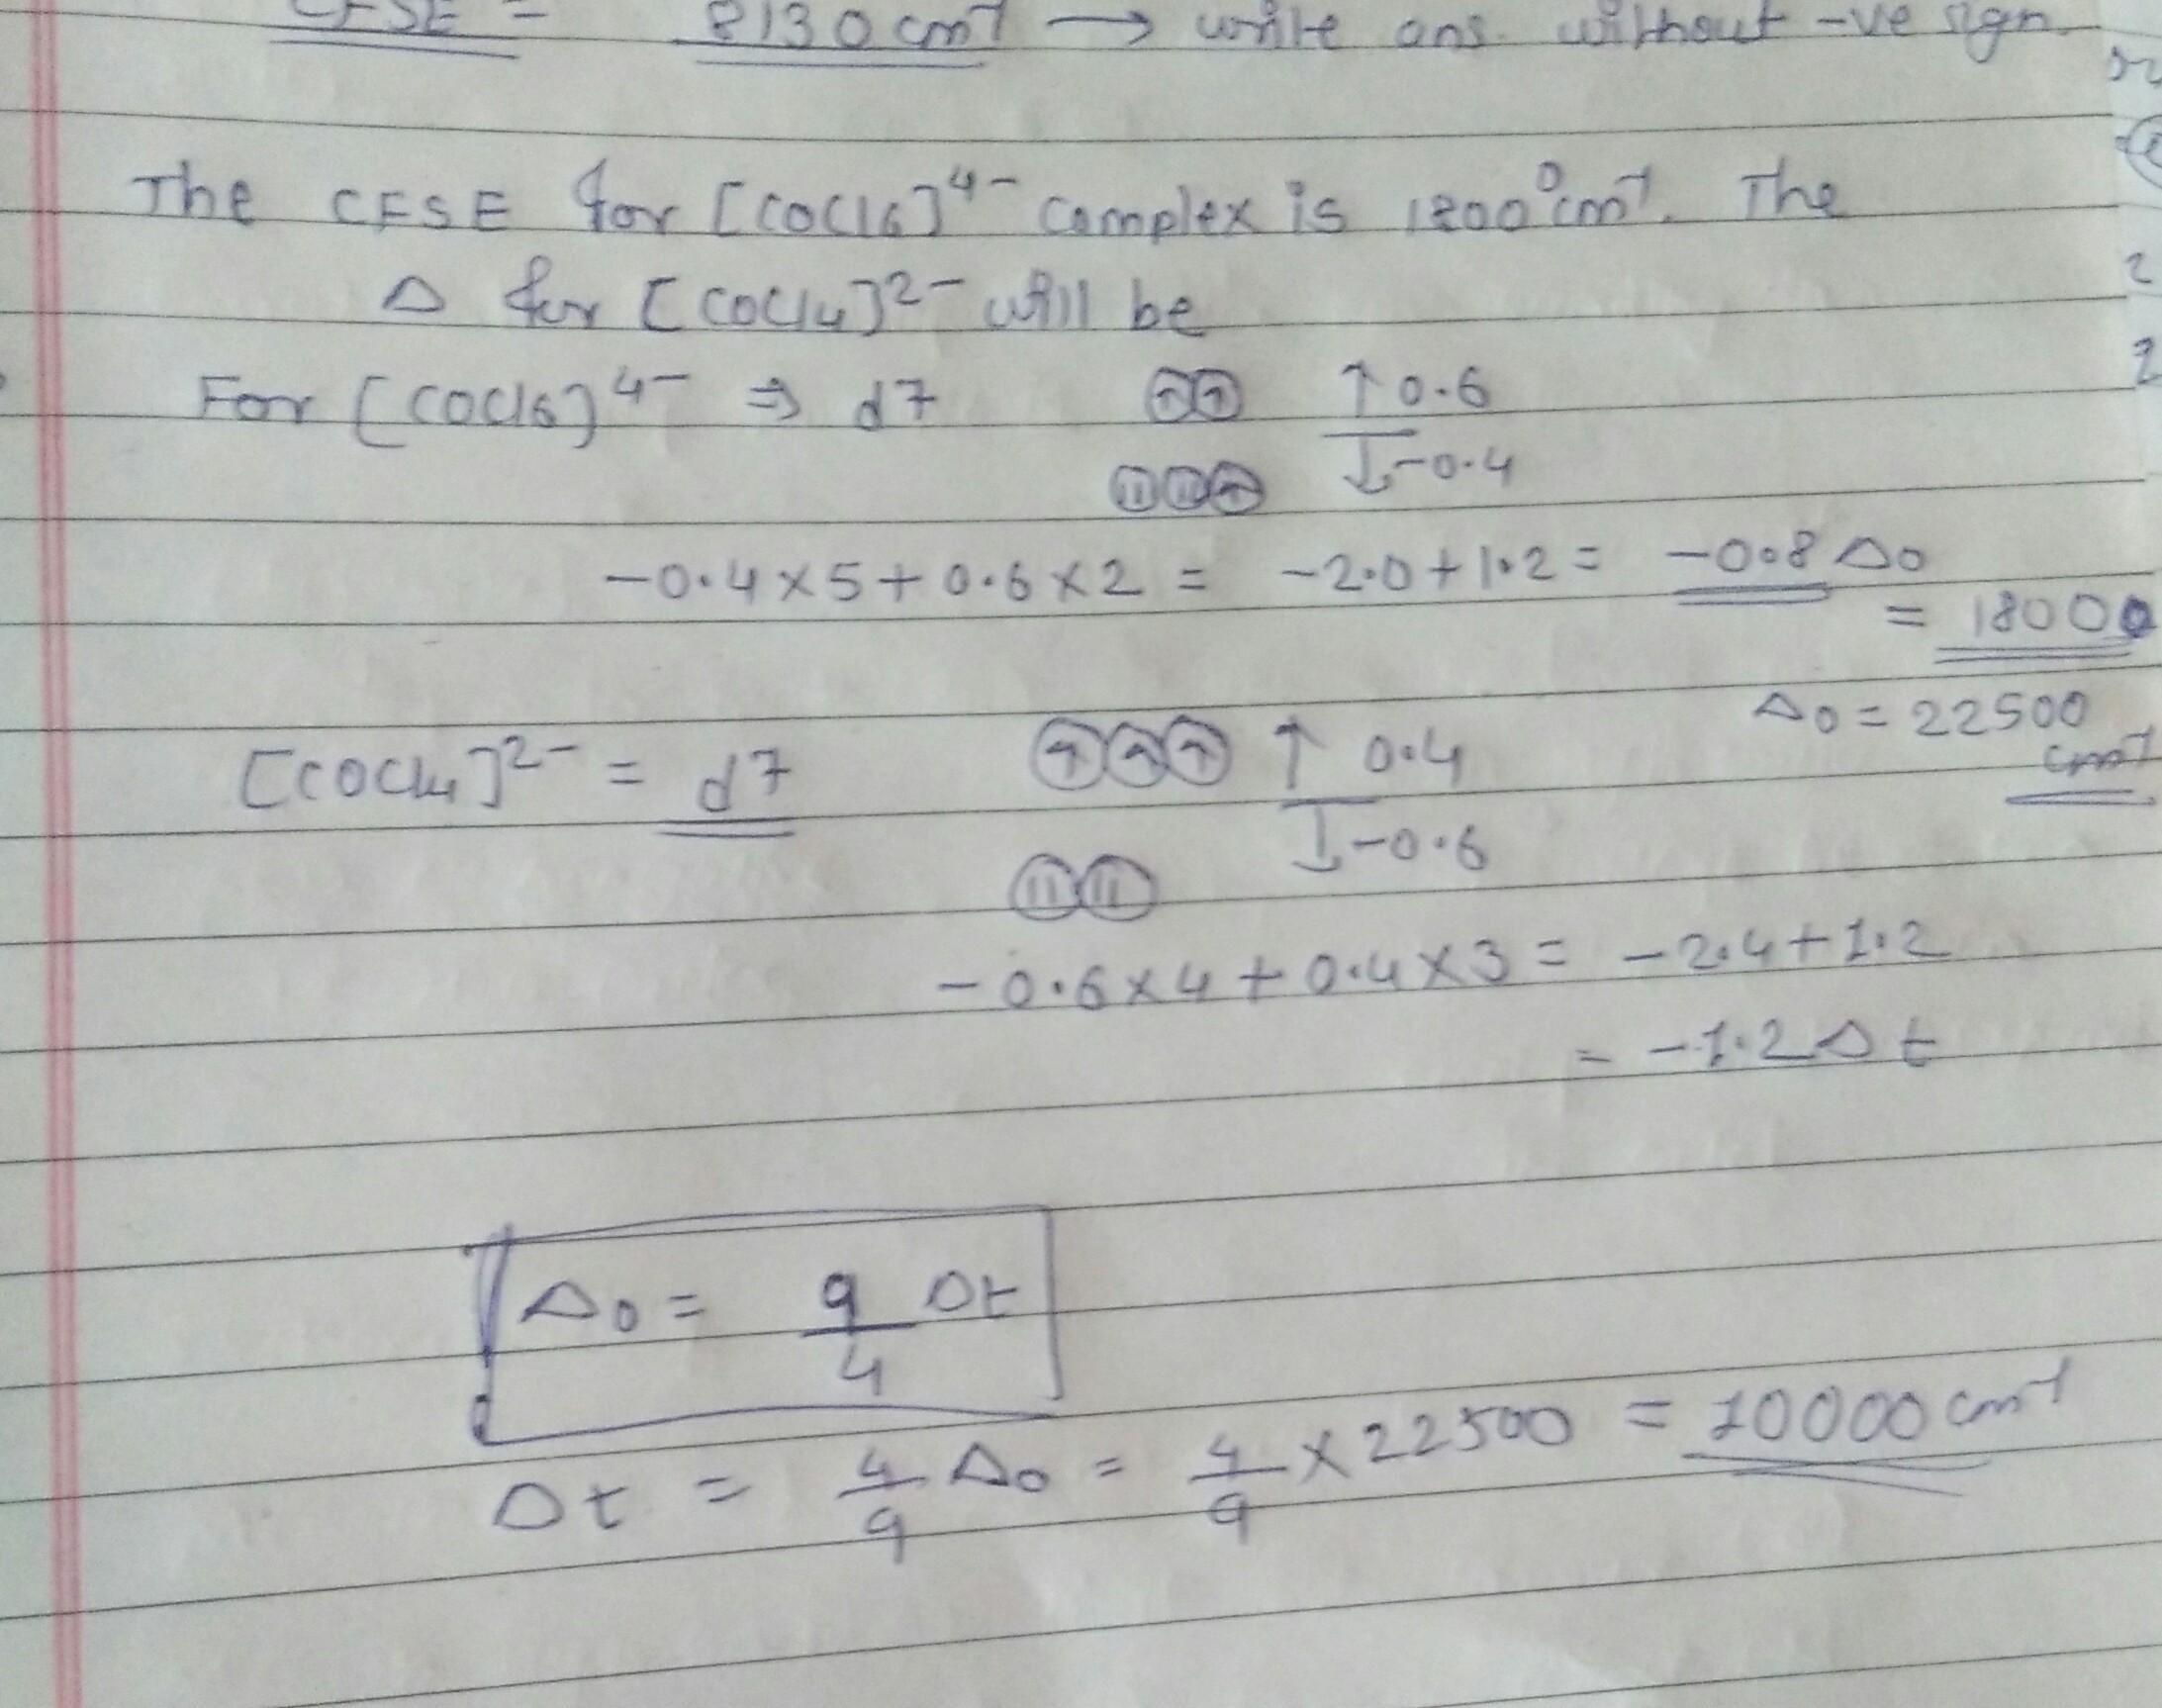 CFSE = 8130 cm⁻¹ → write ans. without -ve sign
The CFSE for [CoCl6]⁴⁻ complex is 18000 cm⁻¹. The
Δ for [CoCl4]²⁻ will be
For [CoCl6]⁴⁻ ⇒ d7 ↑ 0.6
↓ -0.4
-0.4×5+0.6×2 = -2.0+1.2 = -0.8 Δo
= 18000
Δo = 22500
cm⁻¹
[CoCl4]²⁻ = d7 ↑ 0.4
↓ -0.6
-0.6×4+0.4×3 = -2.4+1.2
= -1.2 Δt
Δo = 9/4 Δt
Δt = 4/9 Δo = 4/9 × 22500 = 10000 cm⁻¹